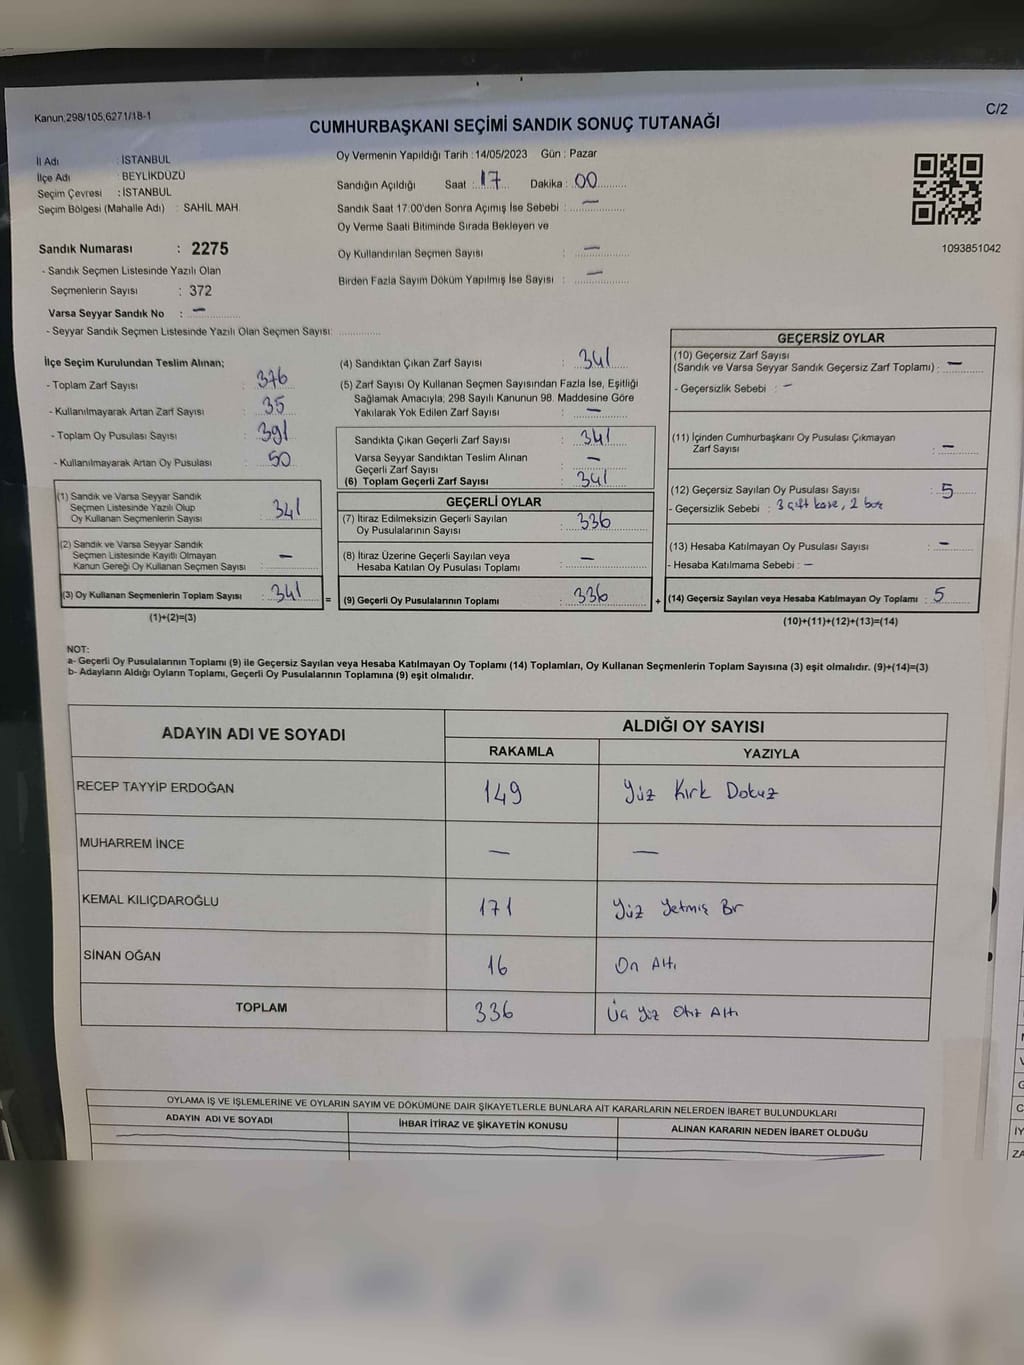 Kanun,298/105,6271/18-1
C/2
CUMHURBAŞKANI SEÇİMİ SANDIK SONUÇ TUTANAĞI
İl Adı : İSTANBUL
İlçe Adı : BEYLİKDÜZÜ
Seçim Çevresi : İSTANBUL
Seçim Bölgesi (Mahalle Adı) : SAHİL MAH.
Oy Vermenin Yapıldığı Tarih : 14/05/2023 Gün : Pazar
Sandığın Açıldığı Saat : 17 Dakika : 00
Sandık Saat 17:00'den Sonra Açımış İse Sebebi : —
Oy Verme Saati Bitiminde Sırada Bekleyen ve
Oy Kullandırılan Seçmen Sayısı : —
Birden Fazla Sayım Döküm Yapılmış İse Sayısı : —
1093851042
Sandık Numarası : 2275
- Sandık Seçmen Listesinde Yazılı Olan
Seçmenlerin Sayısı : 372
Varsa Seyyar Sandık No : —
- Seyyar Sandık Seçmen Listesinde Yazılı Olan Seçmen Sayısı:
İlçe Seçim Kurulundan Teslim Alınan;
- Toplam Zarf Sayısı : 376
- Kullanılmayarak Artan Zarf Sayısı : 35
- Toplam Oy Pusulası Sayısı : 391
- Kullanılmayarak Artan Oy Pusulası : 50
(1) Sandık ve Varsa Seyyar Sandık
Seçmen Listesinde Yazılı Olup
Oy Kullanan Seçmenlerin Sayısı : 341
(2) Sandık ve Varsa Seyyar Sandık
Seçmen Listesinde Kayıtlı Olmayan
Kanun Gereği Oy Kullanan Seçmen Sayısı : —
(3) Oy Kullanan Seçmenlerin Toplam Sayısı : 341 =
(1)+(2)=(3)
(4) Sandıktan Çıkan Zarf Sayısı : 341
(5) Zarf Sayısı Oy Kullanan Seçmen Sayısından Fazla İse, Eşitliği
Sağlamak Amacıyla; 298 Sayılı Kanunun 98. Maddesine Göre
Yakılarak Yok Edilen Zarf Sayısı : —
Sandıkta Çıkan Geçerli Zarf Sayısı : 341
Varsa Seyyar Sandıktan Teslim Alınan
Geçerli Zarf Sayısı : —
(6) Toplam Geçerli Zarf Sayısı : 341
GEÇERLİ OYLAR
(7) İtiraz Edilmeksizin Geçerli Sayılan
Oy Pusulalarının Sayısı : 336
(8) İtiraz Üzerine Geçerli Sayılan veya
Hesaba Katılan Oy Pusulası Toplamı : —
(9) Geçerli Oy Pusulalarının Toplamı : 336 +
GEÇERSİZ OYLAR
(10) Geçersiz Zarf Sayısı
(Sandık ve Varsa Seyyar Sandık Geçersiz Zarf Toplamı) : —
- Geçersizlik Sebebi : —
(11) İçinden Cumhurbaşkanı Oy Pusulası Çıkmayan
Zarf Sayısı : —
(12) Geçersiz Sayılan Oy Pusulası Sayısı : 5
- Geçersizlik Sebebi : 3 çift kaşe, 2 boş
(13) Hesaba Katılmayan Oy Pusulası Sayısı : —
- Hesaba Katılmama Sebebi : —
(14) Geçersiz Sayılan veya Hesaba Katılmayan Oy Toplamı : 5
(10)+(11)+(12)+(13)=(14)
NOT:
a- Geçerli Oy Pusulalarının Toplamı (9) ile Geçersiz Sayılan veya Hesaba Katılmayan Oy Toplamı (14) Toplamları, Oy Kullanan Seçmenlerin Toplam Sayısına (3) eşit olmalıdır. (9)+(14)=(3)
b- Adayların Aldığı Oyların Toplamı, Geçerli Oy Pusulalarının Toplamına (9) eşit olmalıdır.
ADAYIN ADI VE SOYADI
ALDIĞI OY SAYISI
RAKAMLA YAZIYLA
RECEP TAYYİP ERDOĞAN 149 Yüz Kırk Dokuz
MUHARREM İNCE — —
KEMAL KILIÇDAROĞLU 171 Yüz Yetmiş Br
SİNAN OĞAN 16 On Altı
TOPLAM 336 Üç Yüz Otuz Altı
OYLAMA İŞ VE İŞLEMLERİNE VE OYLARIN SAYIM VE DÖKÜMÜNE DAİR ŞİKAYETLERLE BUNLARA AİT KARARLARIN NELERDEN İBARET BULUNDUKLARI
ADAYIN ADI VE SOYADI İHBAR İTİRAZ VE ŞİKAYETİN KONUSU ALINAN KARARIN NEDEN İBARET OLDUĞU